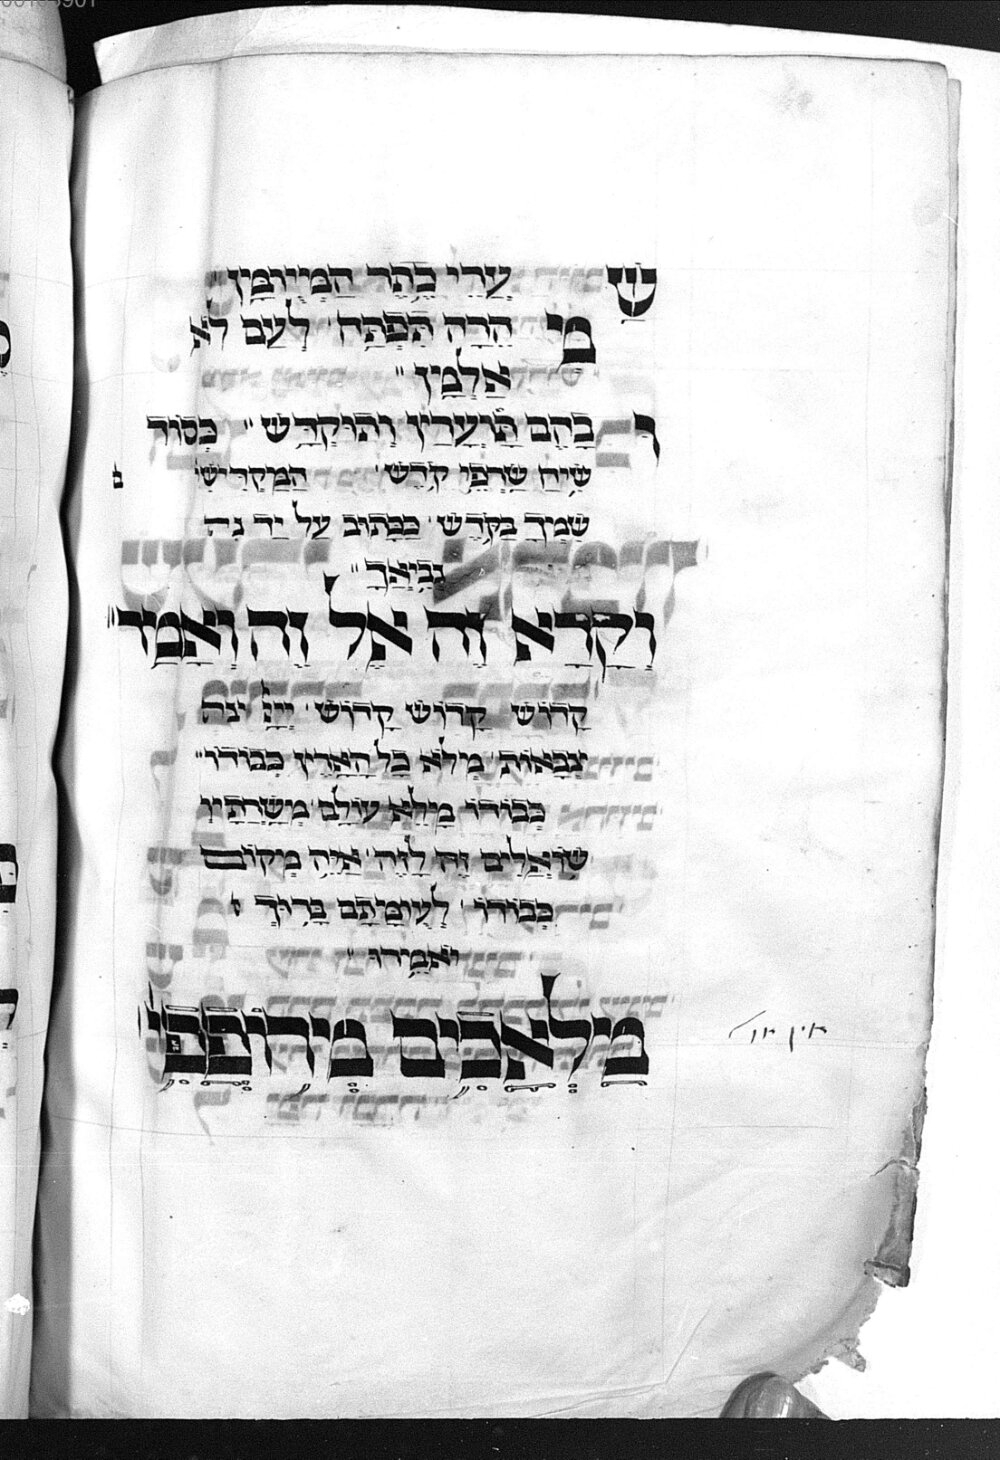 שַׁעֲרֵי כֶתֶר הַמְיֻימָּן״
מֵי הָרָה תִּפְתַּח׳ לְעַם לֹא
אַלְמָן״
וּבָהֶם תּוּעֲרַץ וְתוּקְדַּשׁ״ כְּסוֹד
שִׂיחַ שַׂרְפֵי קֹדֶשׁ׳ הַמַּקְדִּישִׁי ם
שִׁמְךָ בַּקֹּדֶשׁ׳ כַּכָּתוּב עַל יַד נה
נְבִיאָךְ״
וְקָרָא זֶה אֶל זֶה וְאָמַר״
קָדוֹשׁ קָדוֹשׁ קָדוֹשׁ׳ יְיָ צבה
צְבָאוֹת׳ מְלֹא כָל הָאָרֶץ כְּבוֹדוֹ״
כְּבוֹדוֹ מָלֵא עוֹלָם׳ מְשָׁרְתָיו
שׁוֹאֲלִים זֶה לָזֶה׳ אַיֵּה מְקוֹם
כְּבוֹדוֹ׳ לְעוּמָּתָם בָּרוּךְ י
יֹאמֵירוּ״
מַלְאָכִים מְרוֹכָבִי
אין אר׳